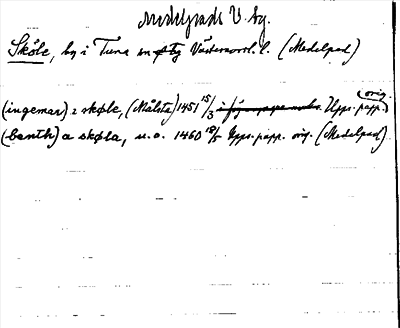 Medelpads V. bg.
Sköle, by i Tuna sn Västernorrl. l. (Medelpad)
orig.
(ingemar) i skøle, (Målsta) 1451 15/3 Upps. papp.)
(benth) a skøla, u.o. 1460 18/5 Upps. papp. orig. (Medelpad).